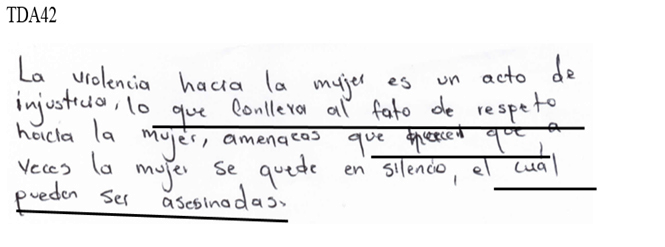 TDA42
La violencia hacia la mujer es un acto de
injusticia, lo que conlleva al fato de respeto
hacia la mujer, amenacas que que, a
veces la mujer se quede en silencio, el cual
pueden ser asesinadas.